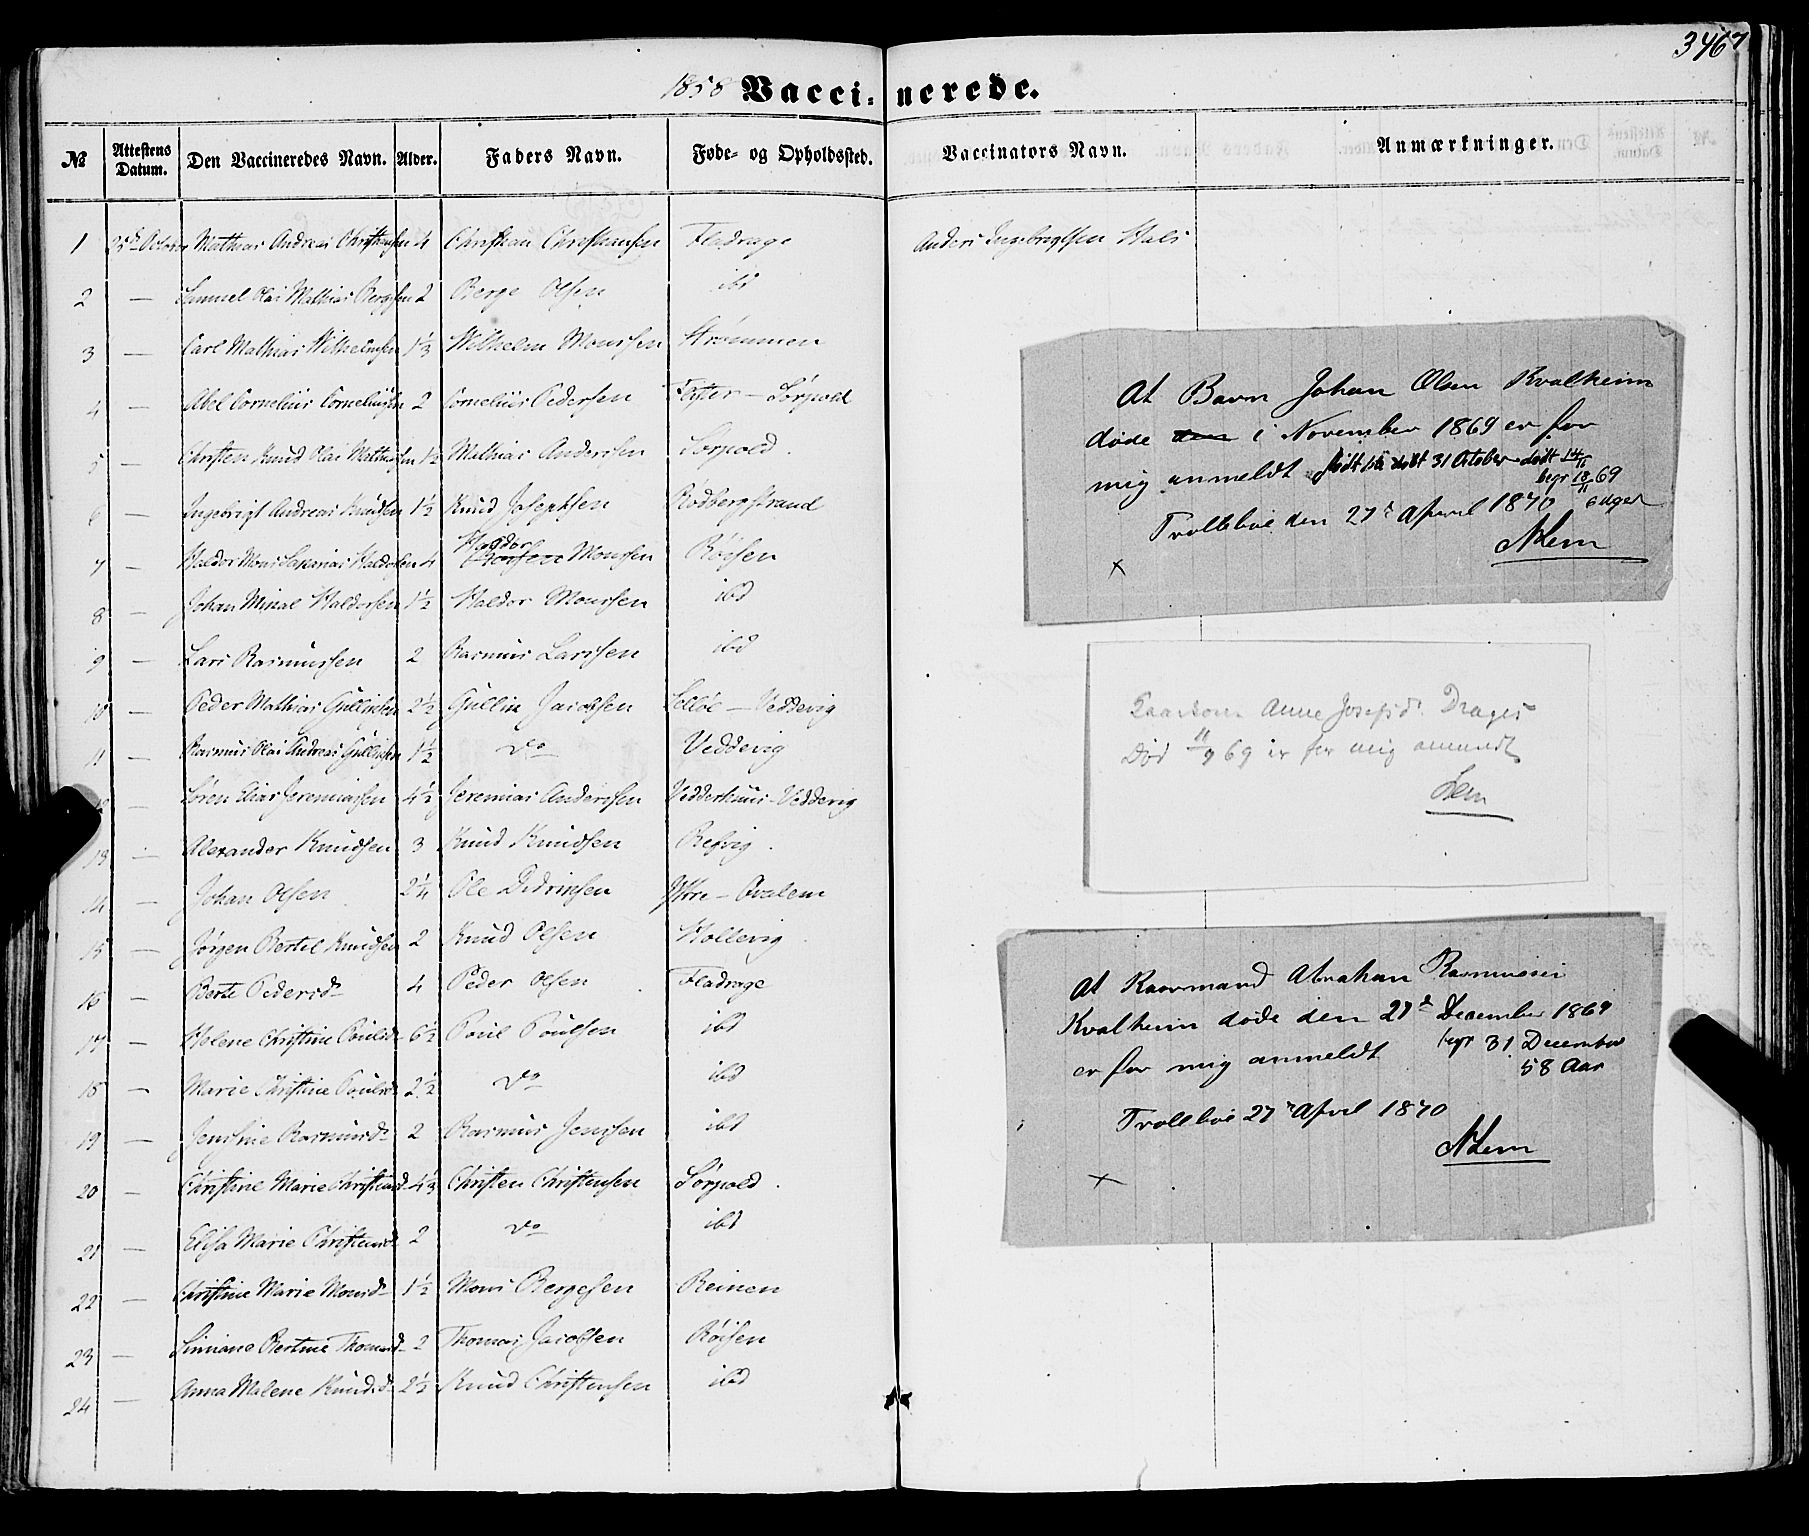 3467
1858 Vacci- nerede.
№ Attestens Datum. Den Vaccineredes Navn. Alder. Faders Navn. Føde- og Opholdssted. Vaccinators Navn. Anmærkninger.
1 25de October Mathias Andreas Christiansen 4 Christian Christiansen Fladrage Anders Ingebrigtsen Hals
2 — Samuel Olai Mathias Bergesen 2 Berge Olsen ibd
3 — Carl Mathias Wilhelmsen 1 1/3 Wilhelm Monssen Strømmen
4 — Abel Cornelius Corneliussen 2 Cornelius Pedersen — Sørpold
5 — Christen Knud Olai Mathiassen 1 1/2 Mathias Anderssen Sørpold.
6 — Ingebrigt Andreas Knudsen 1 1/2 Knud Josephsen Rødbergstrand
7 — Haldor Mons Zakarias Haldorsen 4 Haldor Monssen Røisen
8 — Johan Haldorsen 1 1/2 Haldor Monssen ibd
9 — Lars Rasmussen 2 Rasmus Larssen ibd
10 — Peder Mathias Gulliksen 2 1/2 Gullik Jacobsen — Veddevig
11 — Rasmus Olai Andreas Gulliksen 1 1/2 do Veddevig
12 Søren Elias Jeremiassen 4 1/2 Jeremias Anderssen Vedderhuus - Veddevig
13 — Alexander Knudsen 3 Knud Knudsen Refvig.
14 — Johan Olsen 2 1/4 Ole Didriksen Ytre - Qvalem
15 — Jørgen Bertel Knudsen 2 Knud Olsen Hollevig
16 — Berte Pedersd 4 Peder Olsen Fladrage
17 — Helene Christine Poulsd 6 1/2 Poul Poulsen ibd
18 — Marie Christine Poulsd 2 1/2 do ibd
19 — Jensine Rasmusd 2 Rasmus Jenssen ibd
20 — Christine Marie Christensd 4 1/3 Christen Christensen Sørpold.
21 — Elisa Marie Christensd 2 do ibd
22 — Christine Marie Monsd 1 1/2 Mons Bergesen Reinen
23 — Simiane Bertine Thomasd 2 Thomas Jacobsen Røisen
24 — Anna Malene Knudsd 2 1/2 Knud Christensen ibd
At Barn Johan Olsen Kvalheim
døde den i November 1869 er for
mig anmeldt født 31 October død 14/11
begr 18/11 69
Trolleboe den 27de April 1870 6 uger
N Lem
Anne Josefsd. Drages
Død 11/9 69 er for mig anmeldt
Lem
At Kaarmand Abraham Rasmussen
Kvalheim døde den 27de December 1869
er for mig anmeldt begr 31 December
58 Aar
Trolleboe 27de April 1870
N Lem